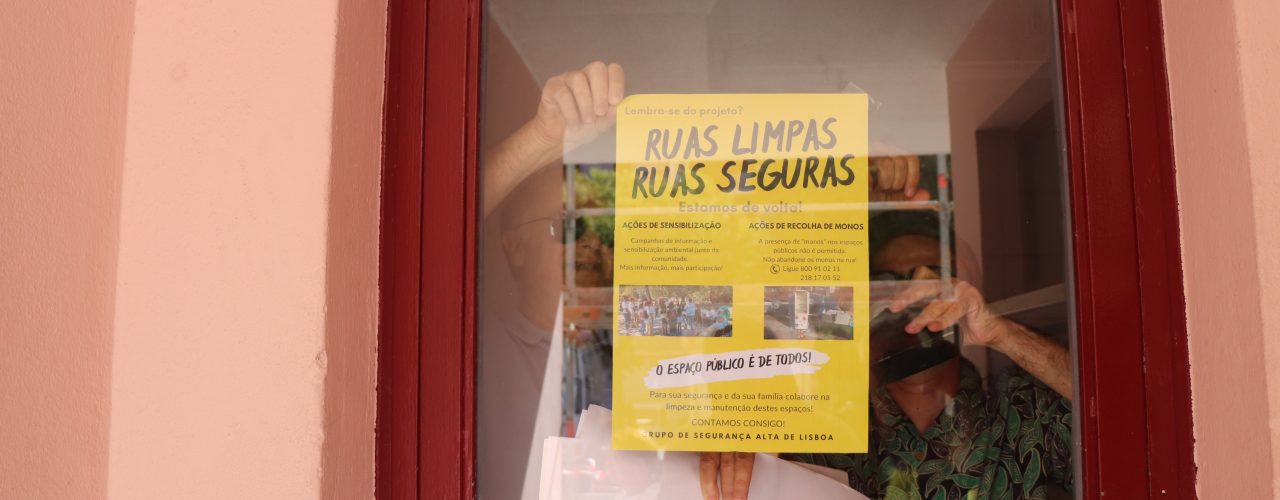 Lembra-se do projeto?
RUAS LIMPAS
RUAS SEGURAS
Estamos de volta!
AÇÕES DE SENSIBILIZAÇÃO
Campanhas de informação e
sensibilização ambiental junto da
comunidade.
Mais informação, mais participação!
AÇÕES DE RECOLHA DE MONOS
A presença de "monos" nos espaços
públicos não é permitida.
Não abandone os monos na rua!
Ligue 800 91 02 11
218 17 05 52
O ESPAÇO PÚBLICO É DE TODOS!
Para sua segurança e da sua família colabore na
limpeza e manutenção destes espaços!
CONTAMOS CONSIGO!
GRUPO DE SEGURANÇA ALTA DE LISBOA